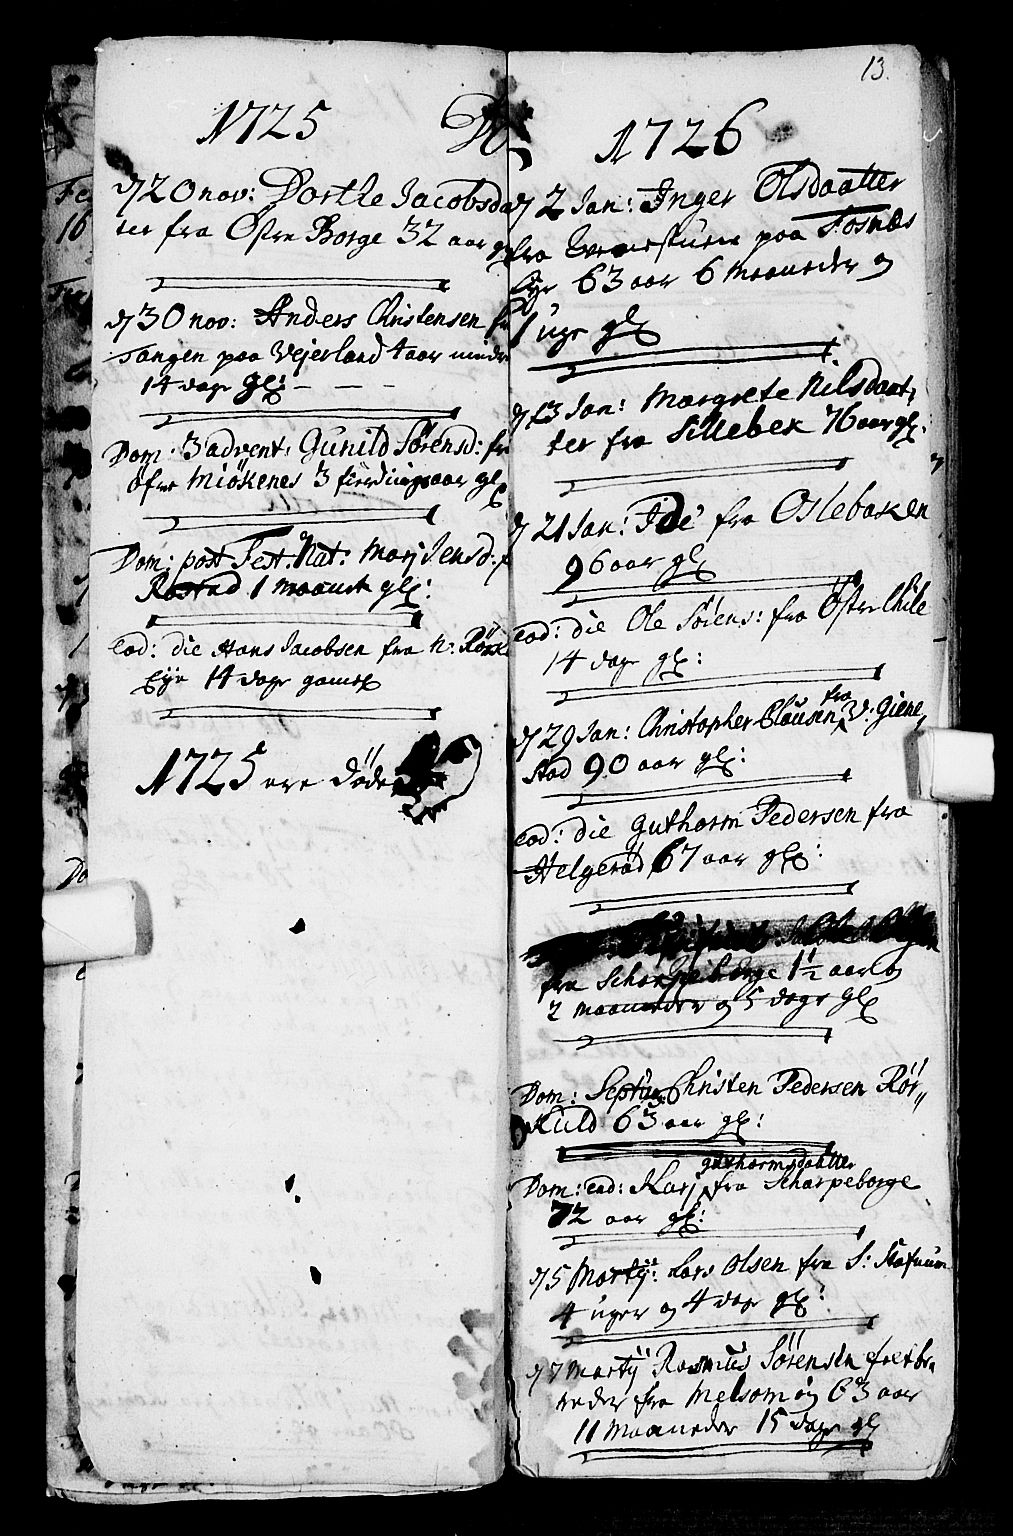 1725
d 20 nov: Dorthe Jacobsda
ter fra Østre Borge 32 aar gl
d 30 nov: Anders Christensen fr
Tangen paa Vejerland 4 aar mindr
14 dage gl:
Dom: 3 advent: Gunild Sørensd: fr
øfre Miøkenes 3 fierding aar gl
Dom: post Fest. Nat: Marj Jensd: f
Rostad 1 maanet gl:
eod: die Hans Jacobsen fra N: Rø
Eye 14 dage gamel
1725 ere døde
13.
1726
d 2 Jan: Inger Olsdaatter
fra paa Fosnæs
Eye 63 aar 6 maaneder og
1 uge gl
d 13 Jan: Margrete Nilsdaat,
ter fra Sillebek 76 aar gl:
d 21 Jan: Ide fra Oslebaken
96 aar gl
eod: die Ole Sørens: fra Østre
14 dage gl:
d 29 Jan: Christopher Clausen fra V: Giene,
stad 90 aar gl:
eod: die Guthorm Pedersen fra
Helgerød 67 aar gl:
fra Scharpeborge 1½ aar og
2 maaneder og 5 dage gl
Dom: Septua: Christen Pedersen Rør,,
Kuld 63 aar gl:
Dom: ead: Karj guthormsdaatter fra Scharpeborge
72 aar gl:
d 5 Martij: Lars Olsen fra S: Stafnum
4 uger og 4 dage gl:
d 7 Martij Rasmus Sørensen
fra Melsom og 63 aar
11 Maaneder 15 dage gl